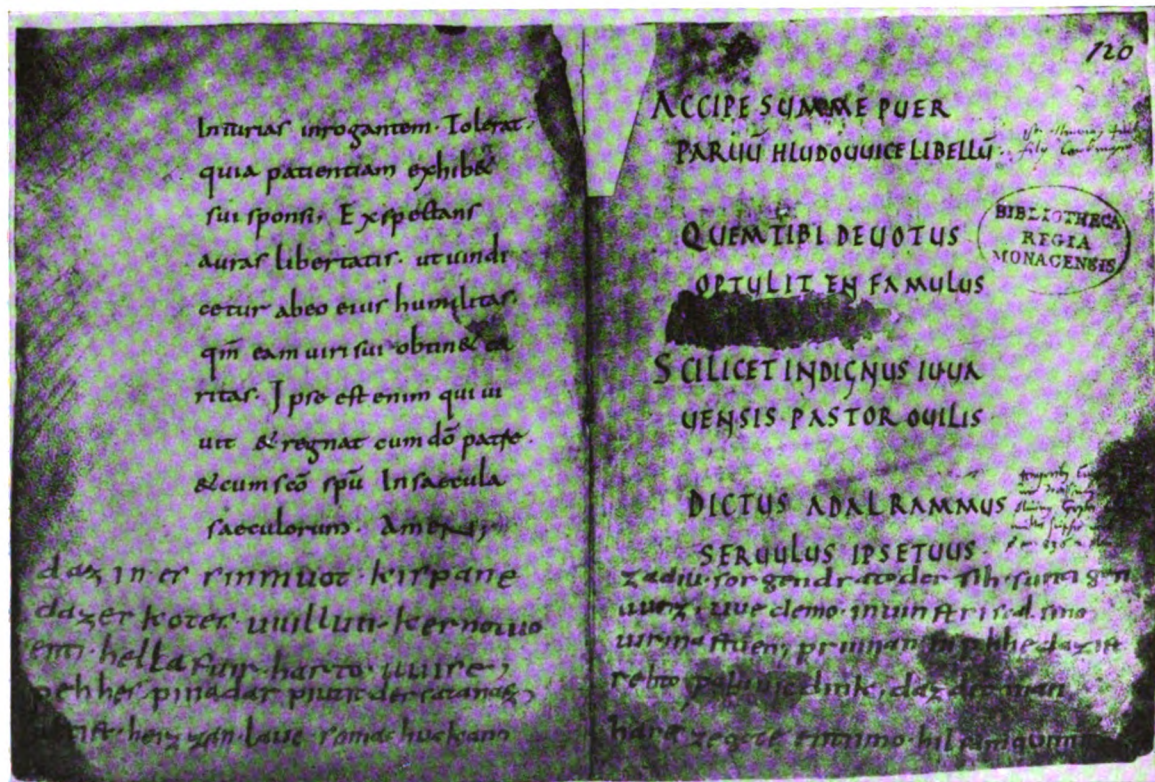 Iniurias inrogantem. Tolerat.
quia patientiam exhib&
sui sponsi, Exspectans
auras libertatis. ut uindi
cetur abeo eius humilitas.
qm̄ eam uiri sui obtin& ca
ritas. Ipse est enim qui ui
uit & regnat cum dō patre.
& cum scō spū In saecula
saeculorum. Amen,
daz in er sinmuot. kispane
daz er kotes uuillun. kernotuo
enti. hella fuir. harto. uuise,
pehhes pina dar piutit der satanaz,
heizzan lauc
120
ACCIPE SUMME PUER
PARUŪ HLUDOUUICE LIBELLŪ.
BIBLIOTHECA
REGIA
MONACENSIS
QUEM TIBI DEUOTUS
OPTULIT EN FAMULUS
SCILICET INDIGNUS IUUA
UENSIS PASTOR OUILIS.
DICTUS ADALRAMMUS
SERUULUS IPSE TUUS.
za diu. sorgen drato der sih. suntigen
uueiz, uue demo. in uinstri scal. sino
uirina stuen, prinnan in pehhe daz ist
rehto paluuic dink, daz der man
haret ze gote enti imo. hilfa ni quimit